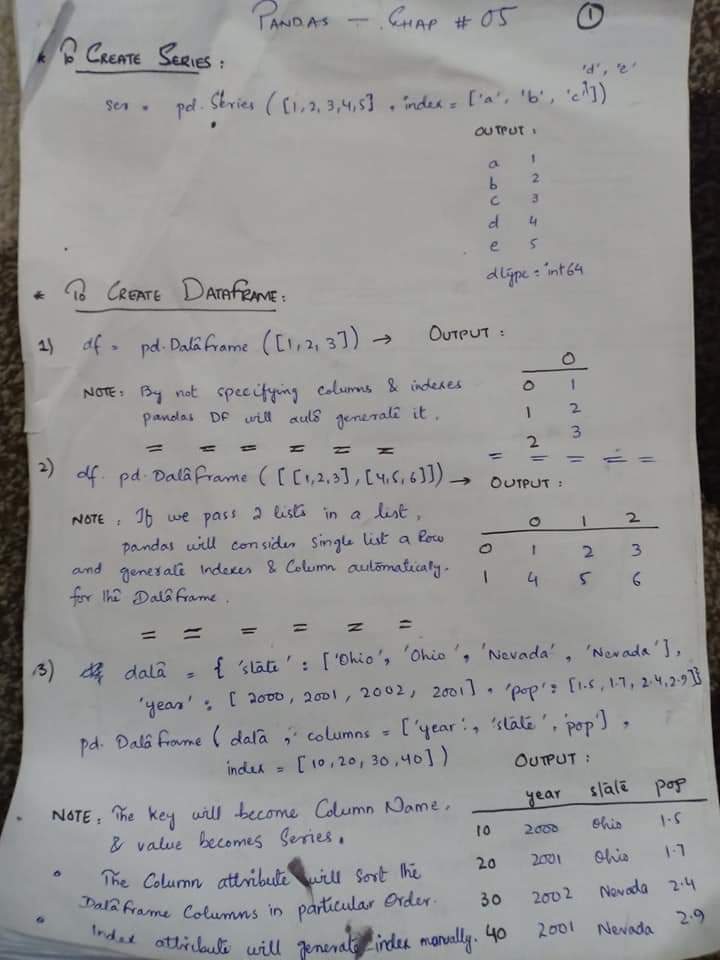 PANDAS — CHAP # 05 ①
* To CREATE SERIES :
'd', 'e'
ser = pd. Series ([1,2,3,4,5] , index = ['a', 'b', 'c'])
OUTPUT :
a 1
b 2
c 3
d 4
e 5
dtype = int64
* To CREATE DATAFRAME :
1) df = pd. DataFrame ([1,2,3]) → OUTPUT :
0
0 1
1 2
2 3
NOTE : By not specifying columns & indexes
pandas DF will auto generate it .
= = = = = =
= = = = =
2) df. pd. DataFrame ([[1,2,3],[4,5,6]]) → OUTPUT :
0 1 2
0 1 2 3
1 4 5 6
NOTE : If we pass 2 lists in a list ,
pandas will consider single list a Row
and generate Indexes & Column automaticaly.
for the DataFrame .
= = = = = =
3) data = { 'state' : ['Ohio', 'Ohio', 'Nevada', 'Nevada'] ,
'year' : [ 2000, 2001, 2002, 2001] , 'pop' : [1.5, 1.7, 2.4, 2.9]}
pd. DataFrame ( data , columns = ['year', 'state', 'pop'] ,
index = [10,20,30,40])
OUTPUT :
year state pop
10 2000 Ohio 1.5
20 2001 Ohio 1.7
30 2002 Nevada 2.4
40 2001 Nevada 2.9
NOTE : The key will become Column Name ,
& value becomes Series .
• The Column attribute will sort the
DataFrame Columns in particular Order.
• Index attribute will generate index manually.